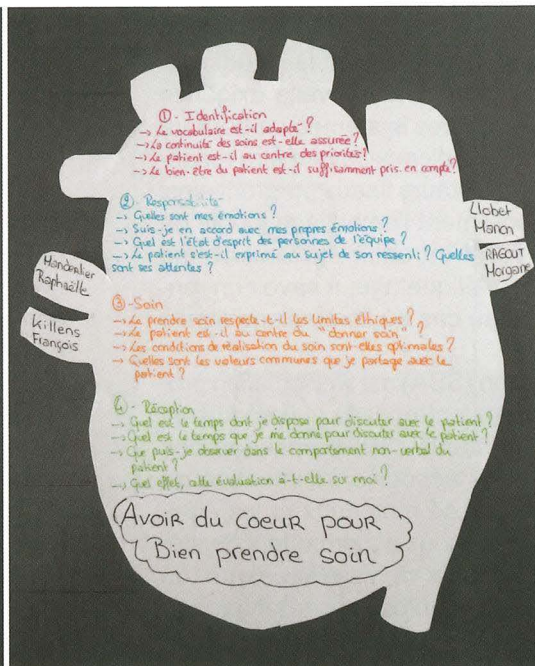 ① - Identification
→ Le vocabulaire est-il adapté ?
→ La continuité des soins est-elle assurée ?
→ Le patient est-il au centre des priorités ?
→ Le bien-être du patient est-il suffisamment pris en compte ?
② - Responsabilité
→ Quelles sont mes émotions ?
→ Suis-je en accord avec mes propres émotions ?
→ Quel est l'état d'esprit des personnes de l'équipe ?
→ Le patient s'est-il exprimé au sujet de son ressenti ? Quelles
sont ses attentes ?
Llobet
Manon
RAGOUT
Morgane
Mandorlier
Raphaëlle
Killens
François
③ - Soin
→ Le prendre soin respecte-t-il les limites éthiques ?
→ Le patient est-il au centre du "donner soin" ?
→ Les conditions de réalisation du soin sont-elles optimales ?
→ Quelles sont les valeurs communes que je partage avec le
patient ?
④ - Réception
→ Quel est le temps dont je dispose pour discuter avec le patient ?
→ Quel est le temps que je me donne pour discuter avec le patient ?
→ Que puis-je observer dans le comportement non-verbal du
patient ?
→ Quel effet, cette évaluation a-t-elle sur moi ?
Avoir du Coeur pour
Bien prendre soin